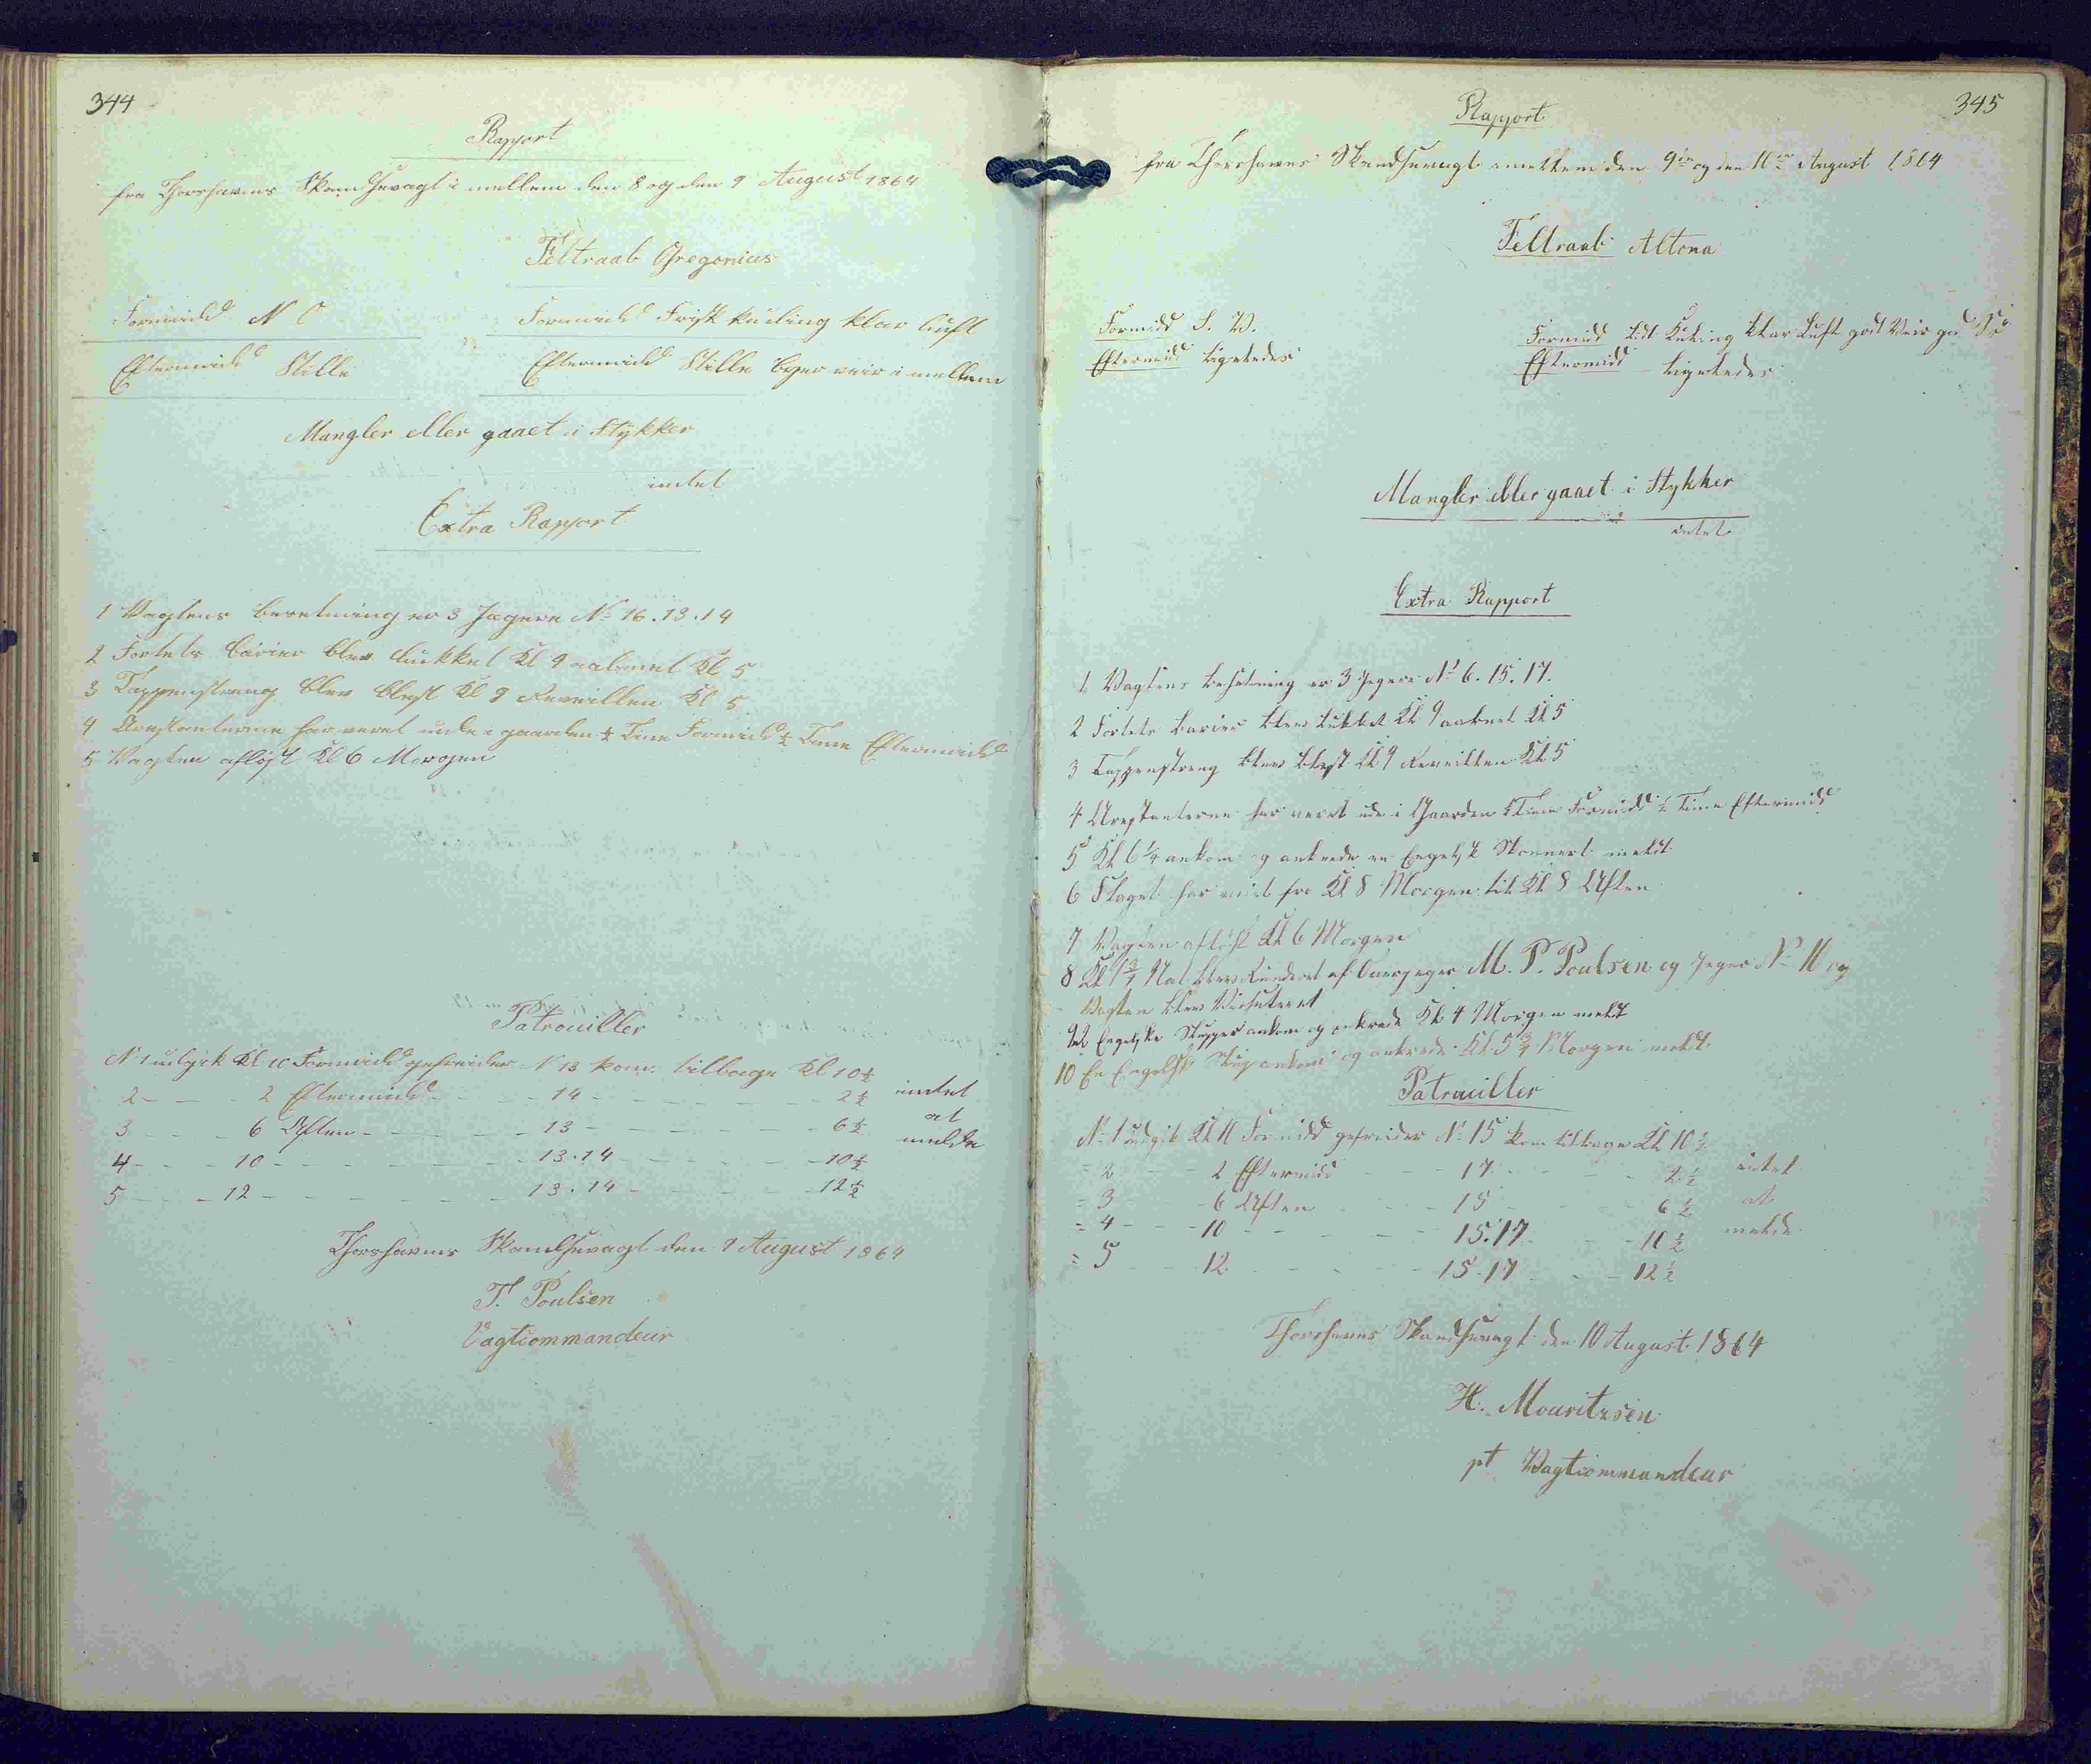 344
Rapport
fra Thorshavns Skandsevagt i mellem den 8 og den 9 August 1864
Feltraab Gregorius
Formidd N O
Formidd Frisk kuling klar luft
Eftermidd Stille
Eftermidd Stille byer veir i mellem
Mangler eller gaaet i Stykker
intet
Extra Rapport
1 Vagtens besetning er 3 Jægere No 16.13.14
2 Fortets barier blev lukket Kl 9 aabnet Kl 5
3 Tappenstreng blev blest Kl 9 Reveillen Kl 5
4 Arestanterne har veret ude i gaarden ½ Time Formidd ½ Time Eftermidd
5 Vagten afløst Kl 6 Morgen
Patrouiller
N 1 udgik Kl 10 Formidd gefreider N 13 kom tilbage Kl 10½
2 - - - 2 Eftermidd - - - 14 - - - - - 2½ intet
3 - - - 6 Aften - - - - 13 - - - - - 6½ at
4 - - - 10 - - - - - 13.14 - - - - - 10½ melde
5 - - - 12 - - - - - 13.14 - - - - 12½
Thorshavns Skandsevagt den 9 August 1864
T. Poulsen
Vagtcommandeur
345
Rapport
fra Thorshavns Skandsevagt imellem den 9de og den 10de August 1864
Feltraab Altona
Formidd S. V.
Formidd lidt Kuling klar Luft godt Veir god
Eftermidd ligeledes
Eftermidd ligeledes
Mangler eller gaaet i Stykker
intet
Extra Rapport
1 Vagtens besetning er 3 Jegere No 6. 15. 17.
2 Fortets barier blev lukket Kl 9 aabnet Kl 5
3 Tappenstreng blev blest Kl 9 Reveillen Kl 5
4 Arestanterne har veret ude i Gaarden Time Formidd ½ Time Eftermidd
5 Kl 6¼ ankom og ankrede en Engelsk Skonnert meldt
6 Flaget har veiet fra Kl 8 Morgen til Kl 8 Aften
7 Vagten afløst Kl 6 Morgen
8 Kl Nat blev Runderet af Overjeger M. P. Poulsen og Jeger No 10 og
Vagten blev Visiteret
9 Engelske Slupper ankom og ankrede Kl 4 Morgen meldt
10 En Engelsk Slup ankom og ankrede Kl 5¾ Morgen meldt
Patrouiller
No 1 udgik Kl 10 Formidd gefreider No 15 kom tilbage Kl 10½
= 2 - - - 2 Eftermidd - - - 17 - - - 2½ intet
= 3 - - - 6 Aften - - - 15 - - - 6½ at
= 4 - - - 10 - - - - 15.17 - - - 10½ melde
= 5 - - - 12 - - - - 15.17 - - - 12½
Thorshavns Skandsevagt den 10 August 1864
H. Mouritzsen
pt Vagtcommandeur